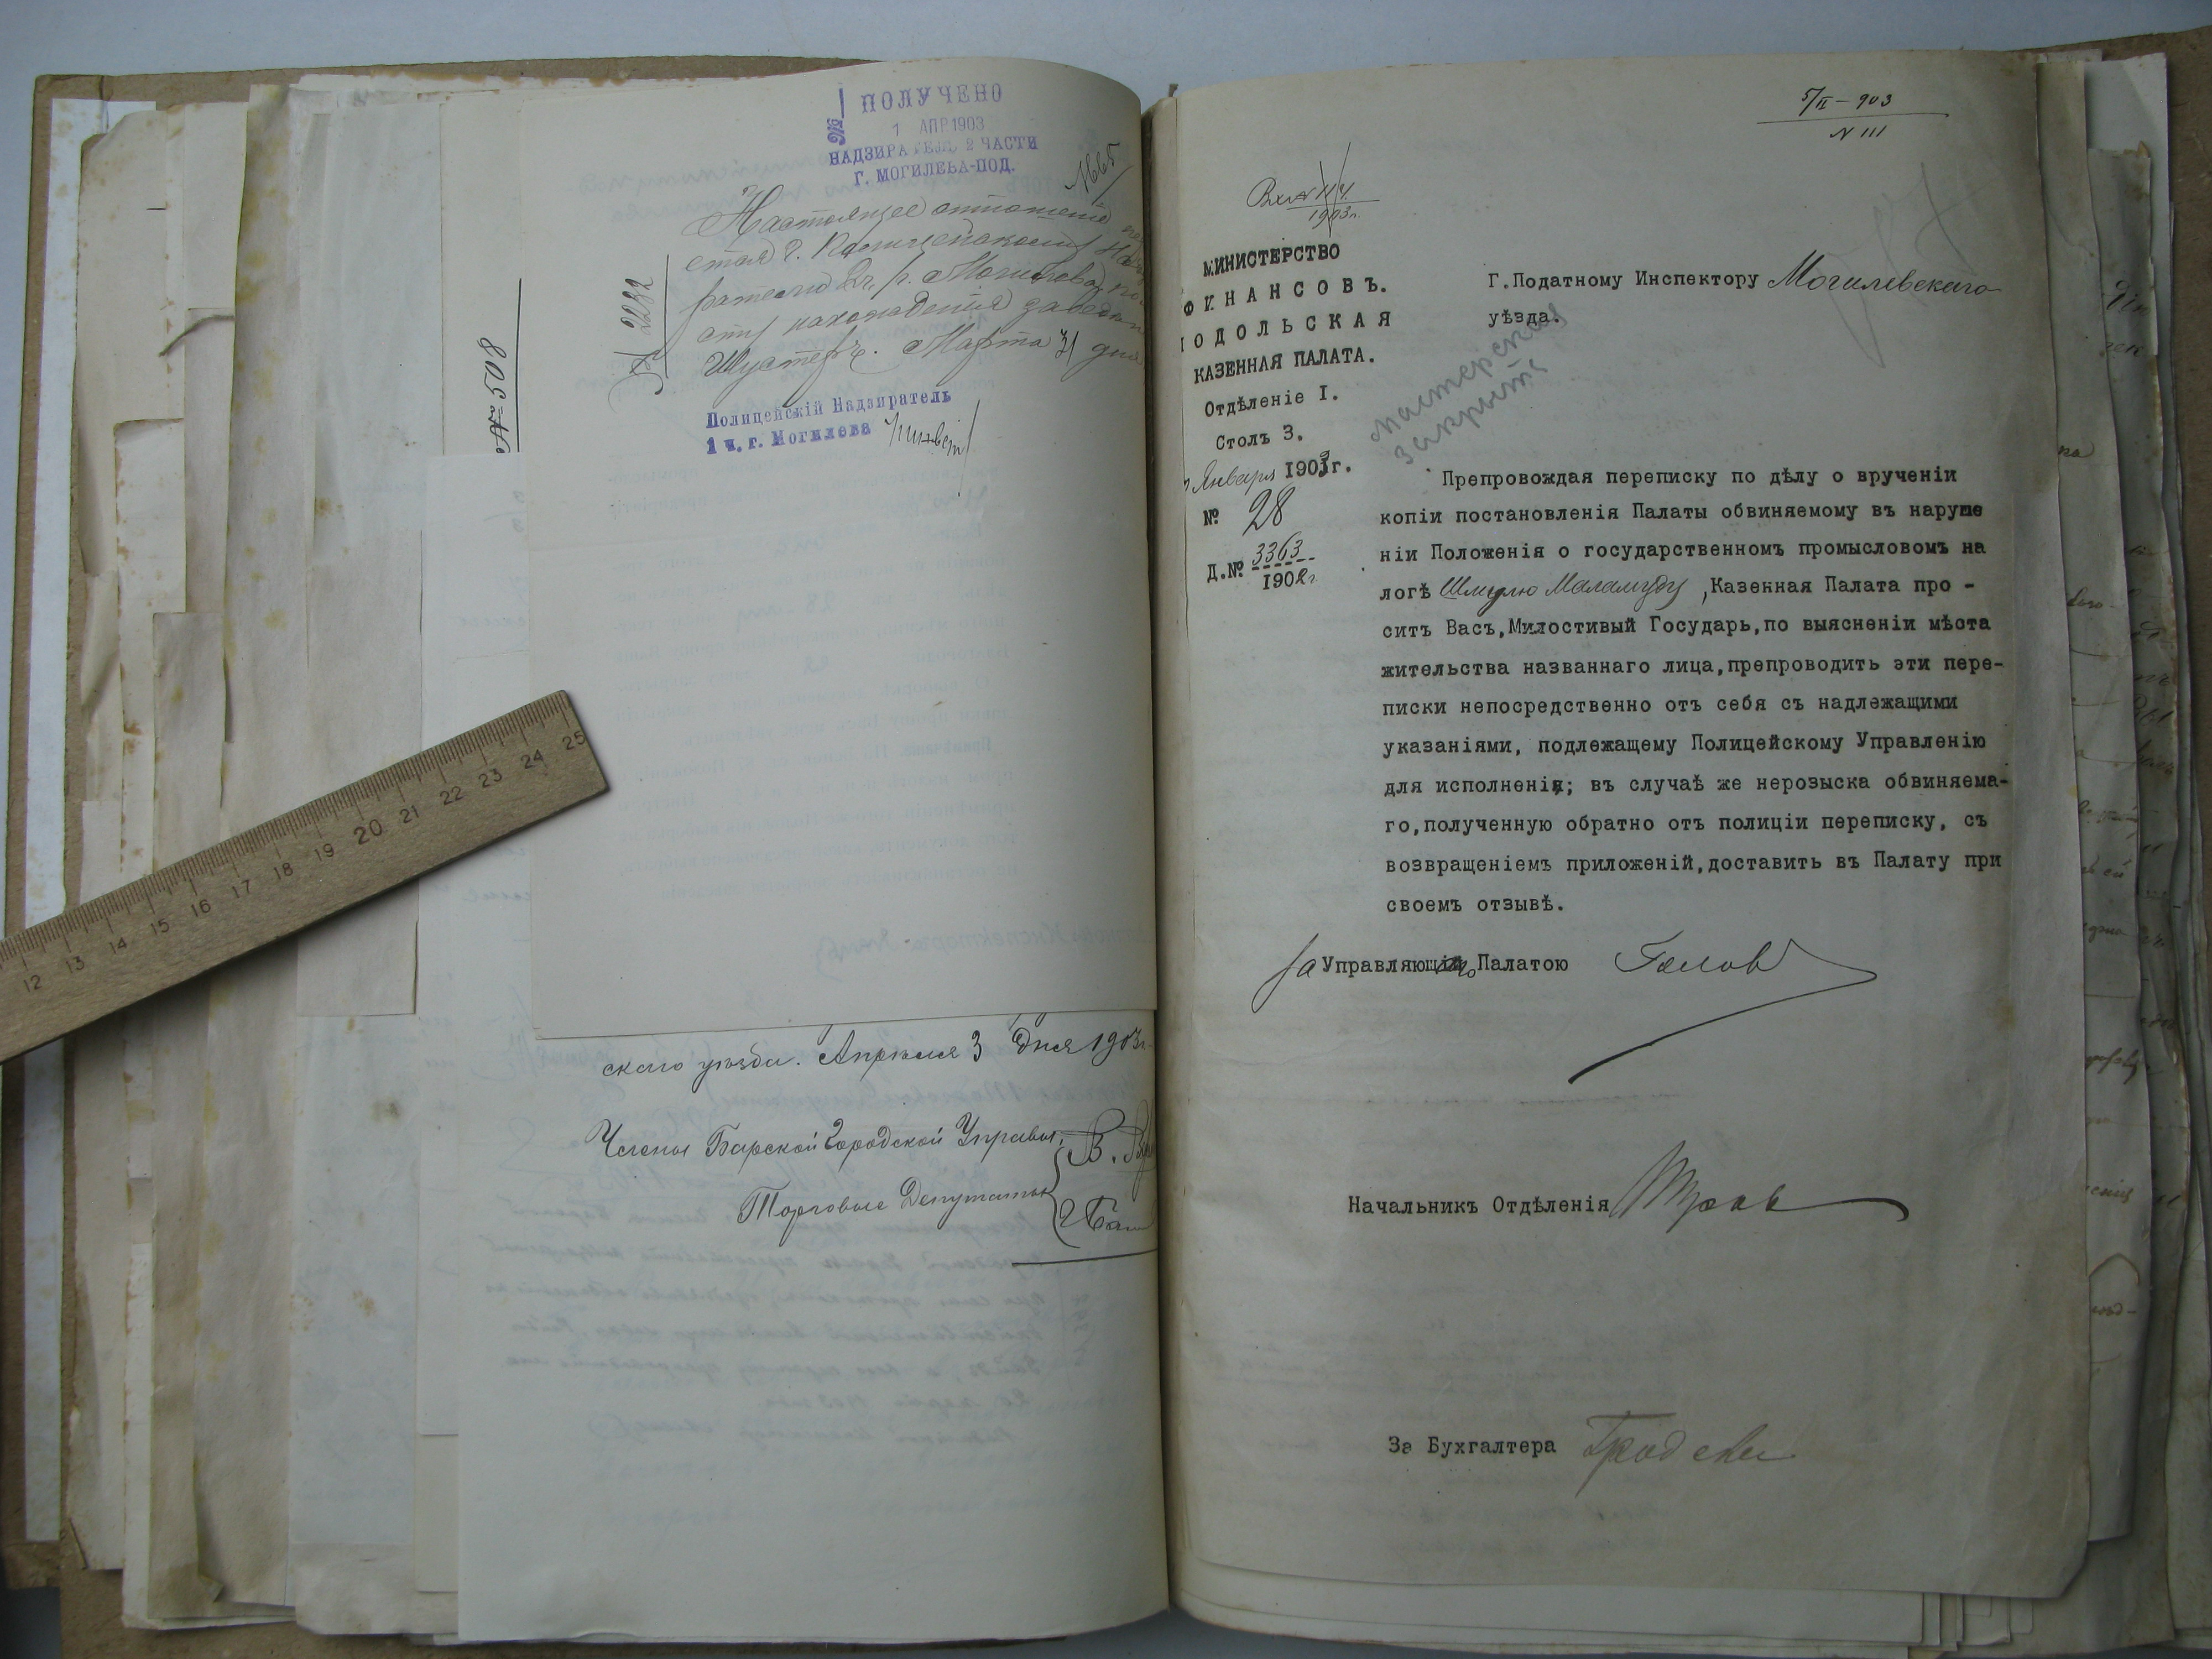 ПОЛУЧЕНО
1 АПР 1903
НАДЗИРАТЕЛЬ 2 ЧАСТИ
Г. МОГИЛЕВА-ПОД.
№
1665
Настоящее отношение
г. Полицейскому
2 ч. г. Могилева
нахождения
Шустеръ. Марта 31 дня
№ 2282
№ 508
Полицейскій Надзиратель
1 ч. г. Могилева
скаго уѣзда. Апрѣля 3 дня 1903 г.
Члены Барской Городской Управы:
В.
Торговые Депутаты
5/II – 903
N 111
1903 г.
МИНИСТЕРСТВО
ФИНАНСОВЪ.
ПОДОЛЬСКАЯ
КАЗЕННАЯ ПАЛАТА.
Отдѣленіе I.
Столъ 3.
Января 1903 г.
№ 28
Д.№ 3363
1902 г.
Г.Податному Инспектору Могилевскаго
уѣзда.
мастерская
закрыта
Препровождая переписку по дѣлу о врученіи
копіи постановленія Палаты обвиняемому въ наруше
ніи Положенія о государственномъ промысловомъ на
логѣ Шмулю Маламуду, Казенная Палата про -
ситъ Васъ,Милостивый Государь,по выясненіи мѣста
жительства названнаго лица,препроводить эти пере-
писки непосредственно отъ себя съ надлежащими
указаніями, подлежащему Полицейскому Управленію
для исполненія; въ случаѣ же нерозыска обвиняема-
го,полученную обратно отъ полиціи переписку, съ
возвращеніемъ приложеній,доставить въ Палату при
своемъ отзывѣ.
За Управляющаго Палатою
Начальникъ Отдѣленія
За Бухгалтера
12 13 14 15 16 17 18 19 20 21 22 23 24 25